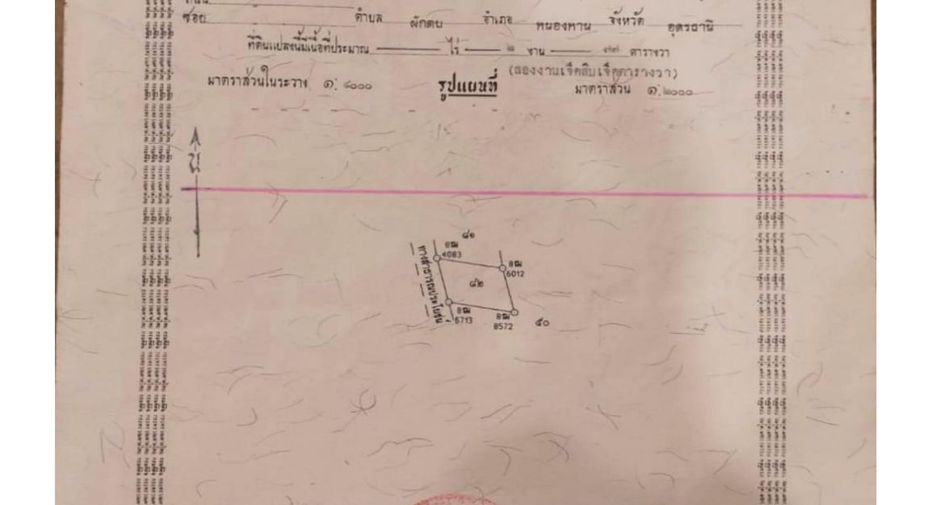 ซอย ตำบล ผักตบ อำเภอ หนองหาน จังหวัด อุดรธานี
ที่ดินแปลงนี้มีเนื้อที่ประมาณ ไร่ ๒ งาน ๗๗ ตารางวา
(สองงานเจ็ดสิบเจ็ดตารางวา)
มาตราส่วนในระวาง ๑:๔๐๐๐ รูปแผนที่ มาตราส่วน ๑:๒๐๐๐
น
๘๑
8ฒ
4083
8ฒ
6012
๘๒
ทางสาธารณประโยชน์
8ฒ
6713
8ฒ
8572
๕๐